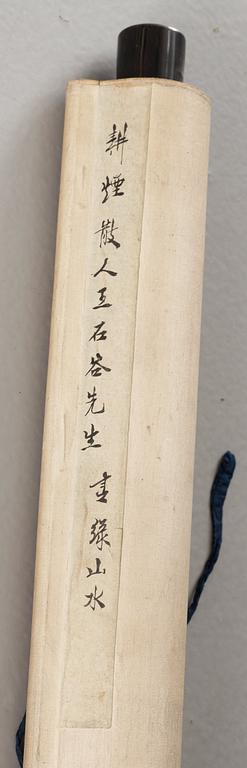 耕煙散人王石谷先生青綠山水